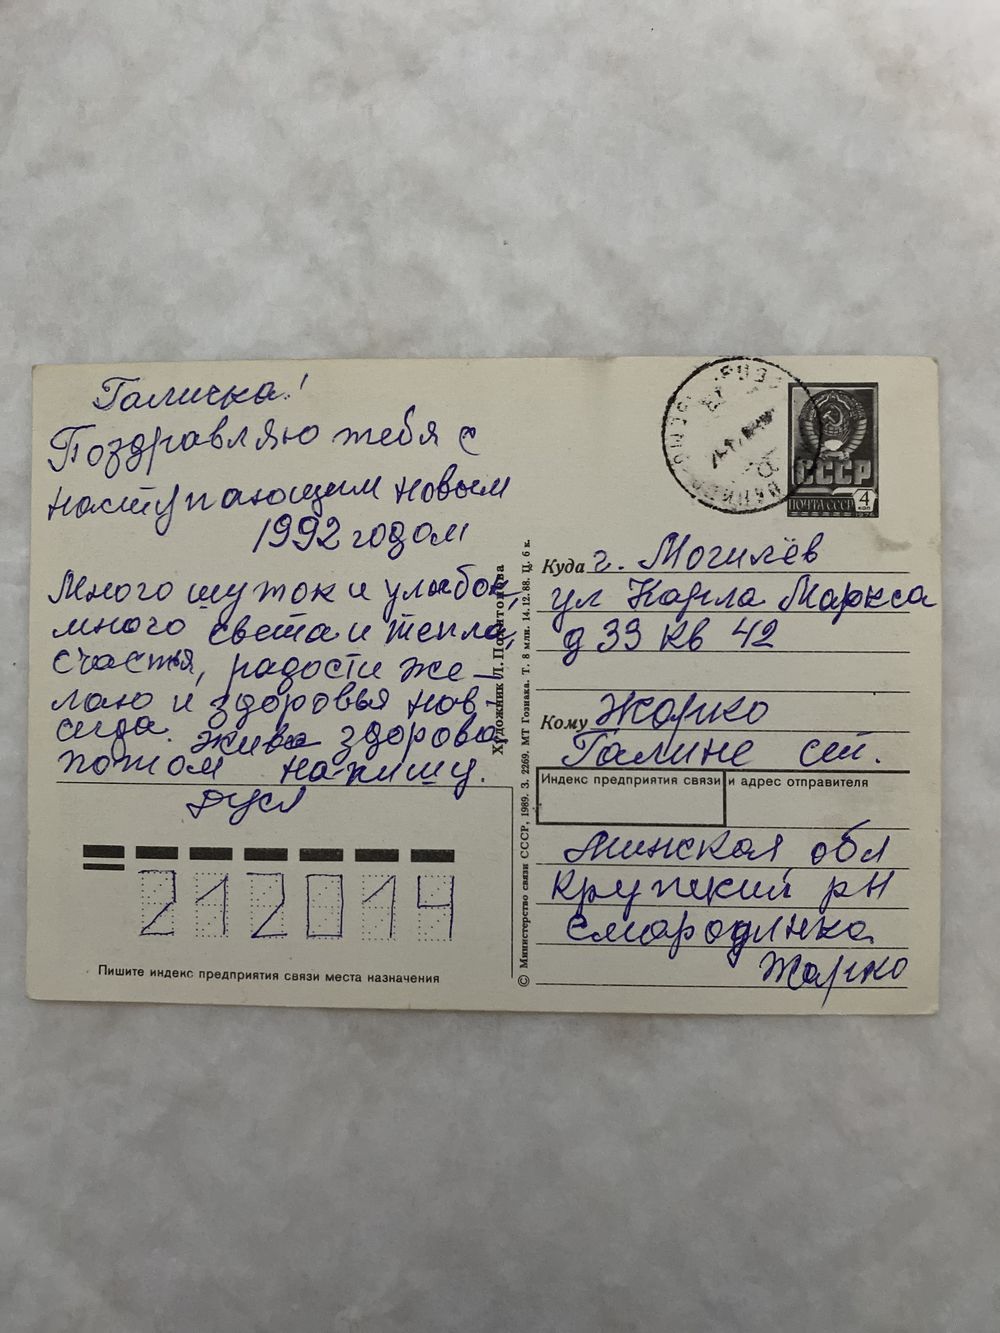 Галичка!
Поздравляю тебя с
наступающим новым
1992 годом
Много шуток и улыбок,
много света и тепла,
счастья, радости же-
лаю и здоровья нов-
сегда. Жива здорова,
потом напишу.
Дуся
212014
Пишите индекс предприятия связи места назначения
Художник Л. Похитонова
© Министерство связи СССР, 1989. З. 2269. МТ Гознака. Т. 8 млн. 14.12.88. Ц. 6 к.
СССР
ПОЧТА СССР 4 коп
1976
Куда г. Могилёв
ул Карла Маркса
д 39 кв 42
Кому Жарко
Галине
Индекс предприятия связи и адрес отправителя
Минская обл
Крупский рн
Смародинка
Жарко